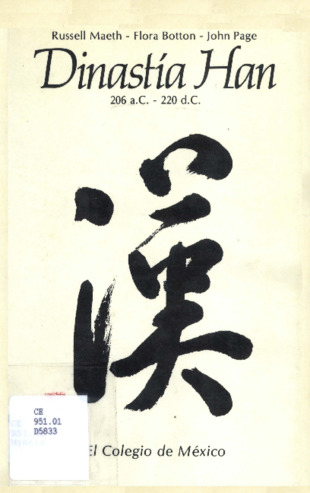 Russell Maeth - Flora Botton - John Page
Dinastía Han
206 a.C. - 220 d.C.
漢
CE
951.01
D5833
El Colegio de México